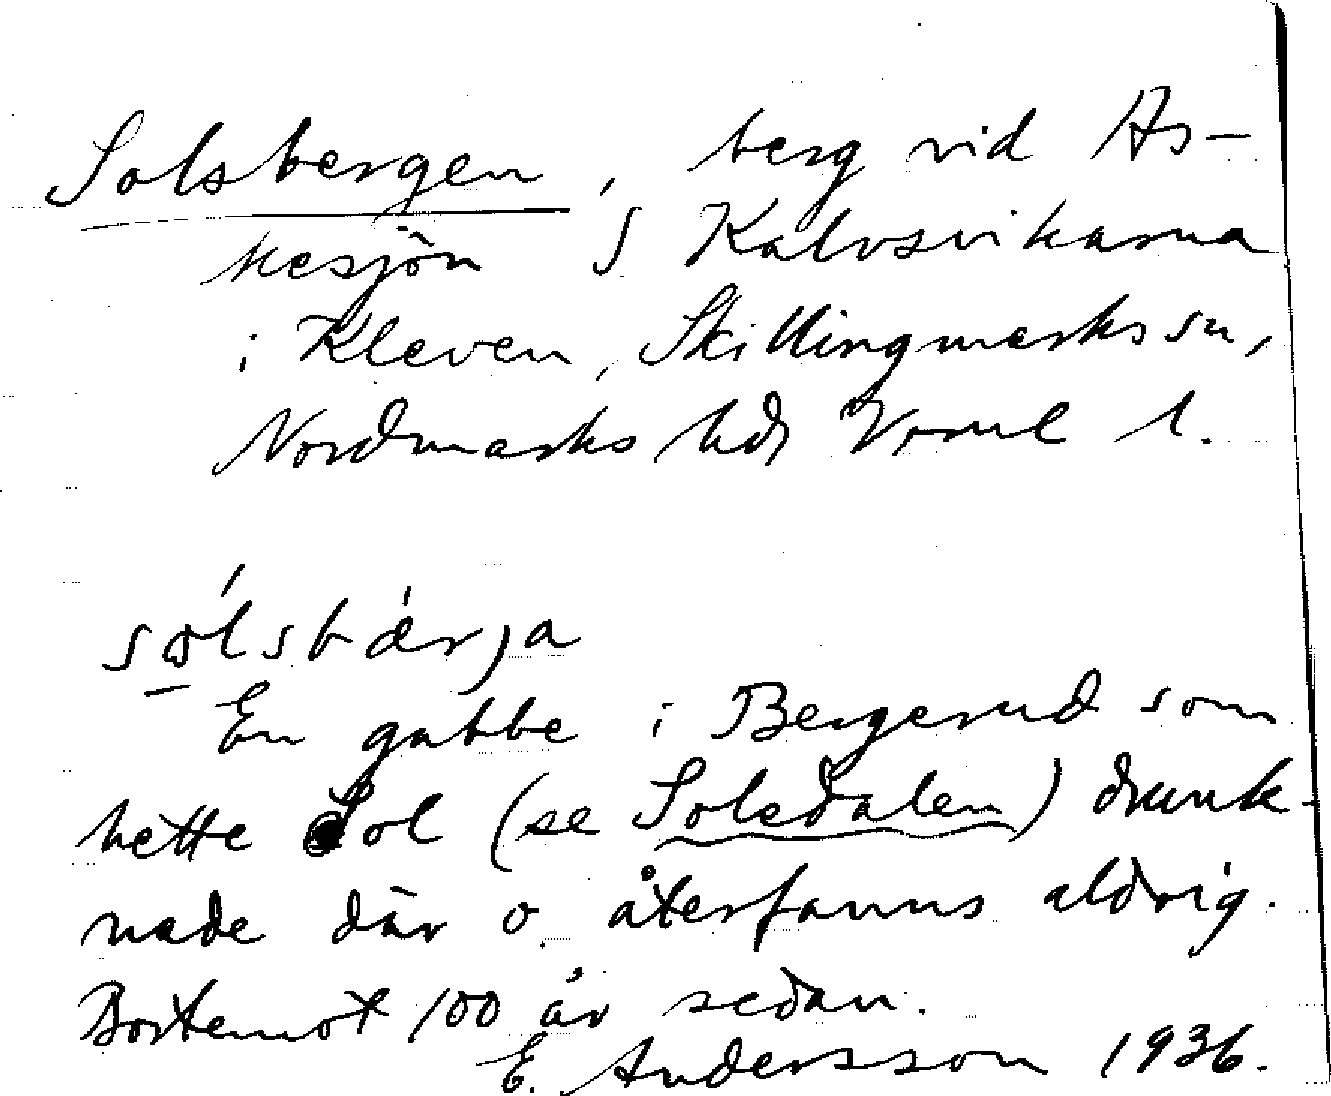 Solsbergen, berg vid As-
kesjön S Kalvsvikarna
i Kleven, Skillingmarks sn,
Nordmarks hd, Vrml l.
sólsbǽrja
En gubbe i Bergerud som
hette Sol (se Solsdalen) drunk-
nade där o. återfanns aldrig.
Bortemot 100 år sedan.
E. Andersson 1936.